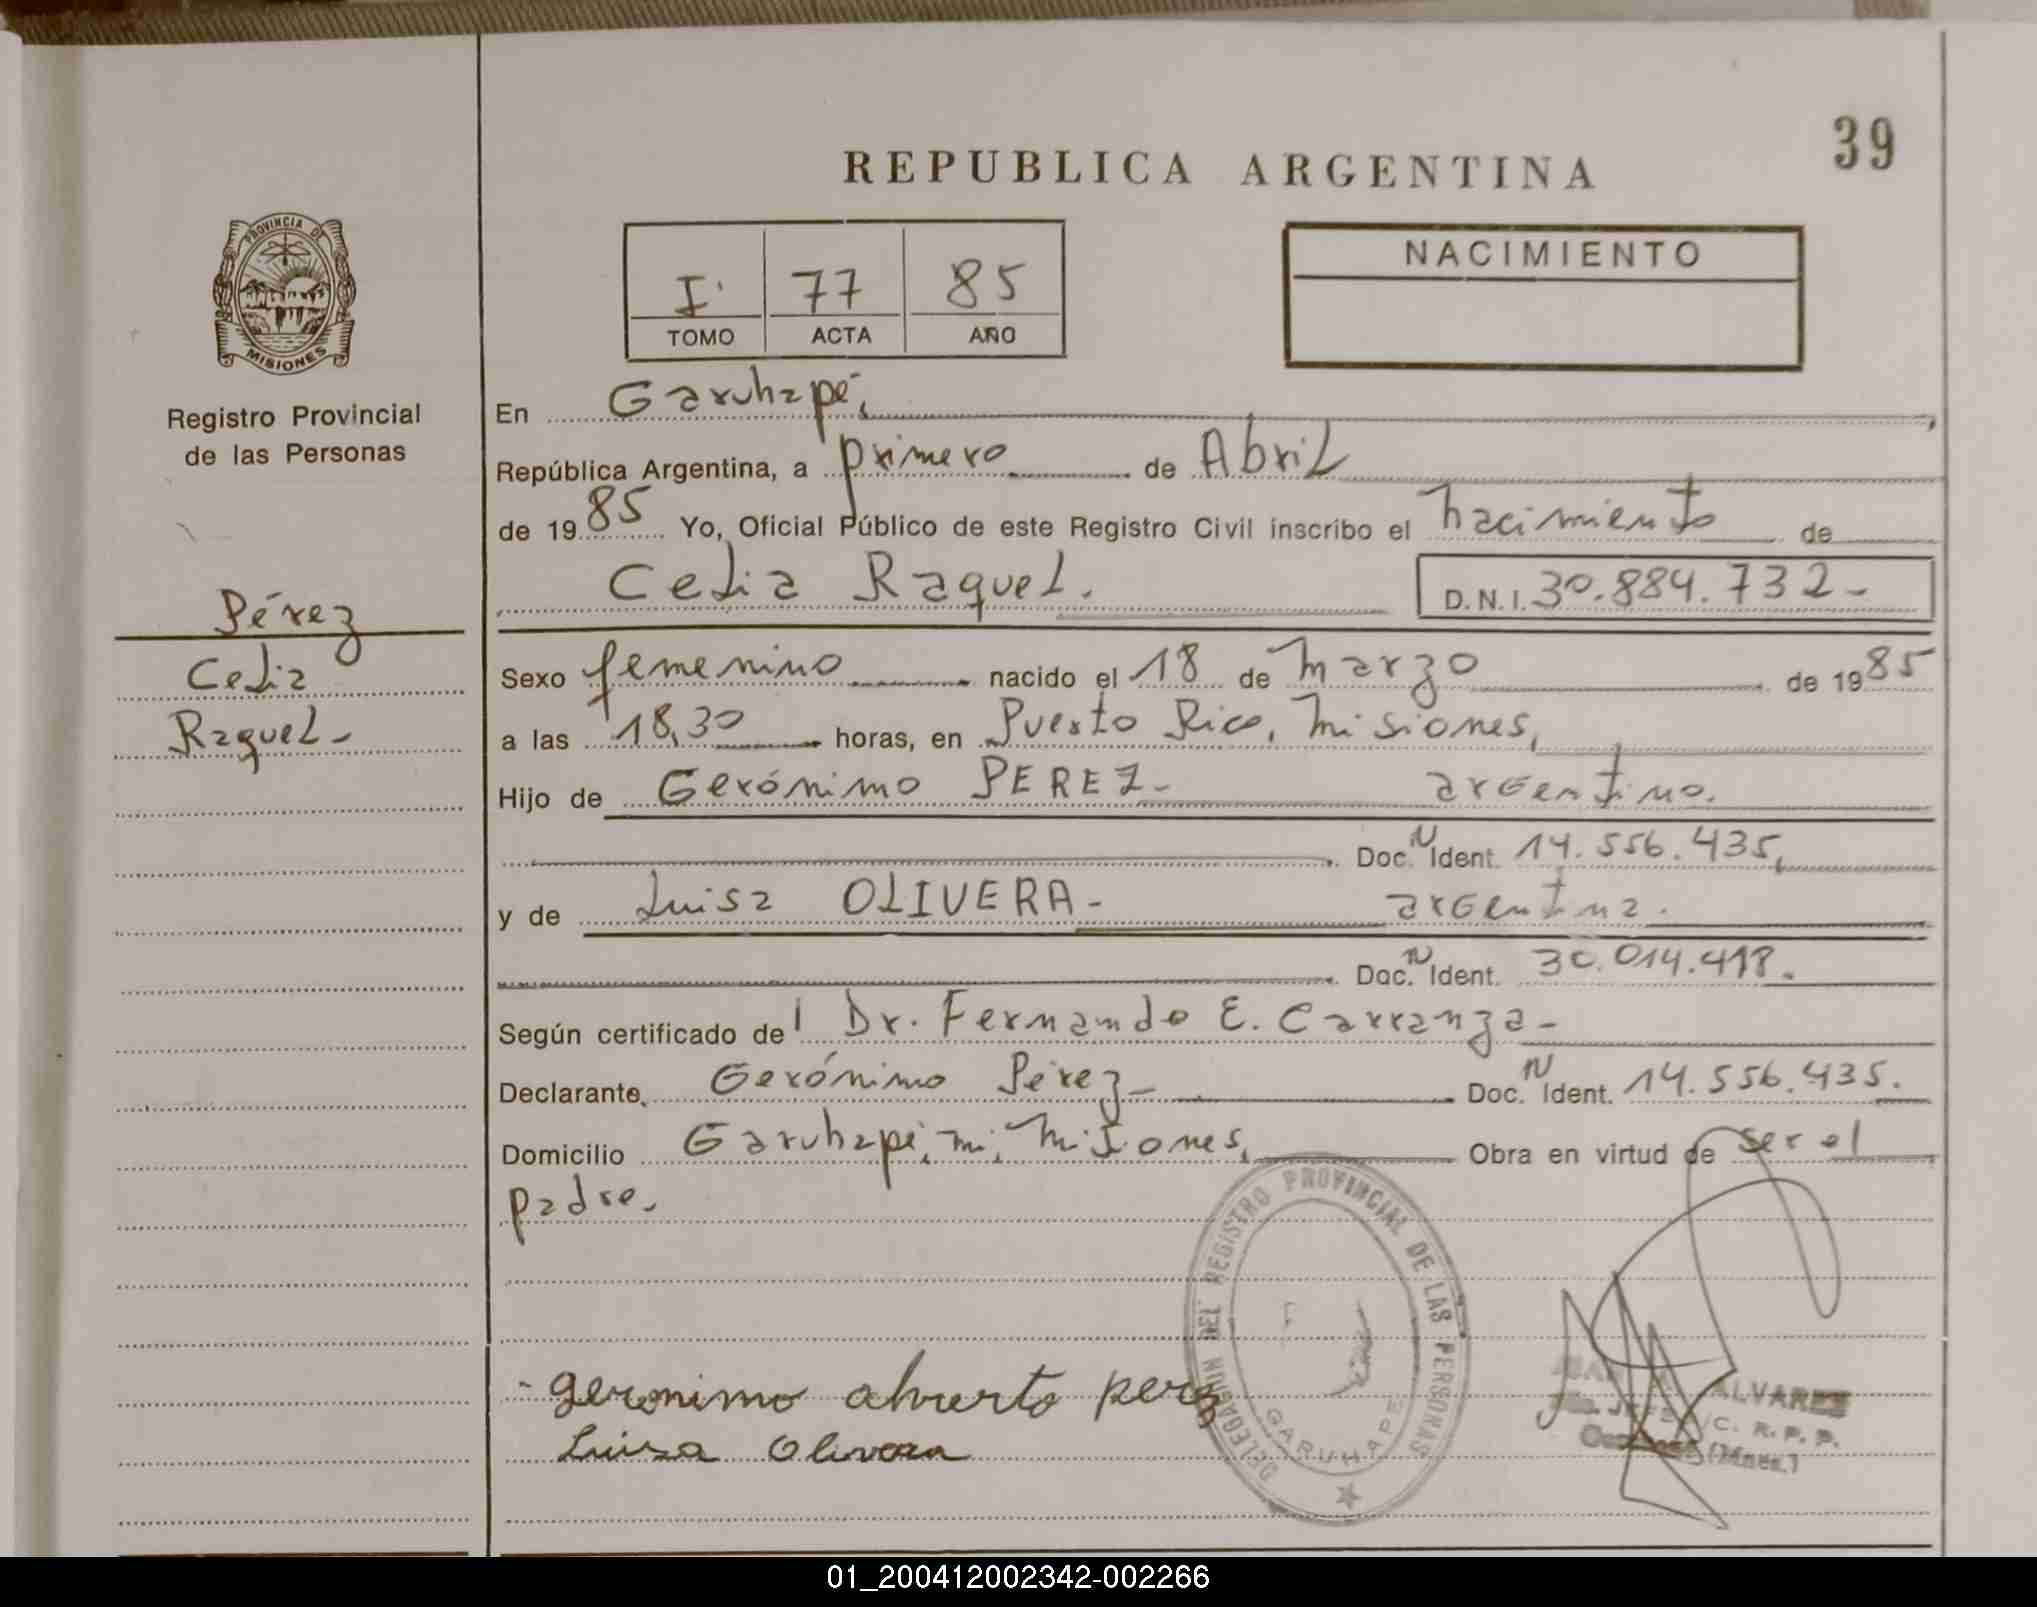 39
REPUBLICA ARGENTINA
PROVINCIA DE
MISIONES
Registro Provincial
de las Personas
Pérez
Celia
Raquel-
I 77 85
TOMO ACTA AÑO
NACIMIENTO
En Garuhapé,
República Argentina, a primero de Abril
de 1985 Yo, Oficial Público de este Registro Civil inscribo el nacimiento de
Celia Raquel. D.N.I. 30.884.732-
Sexo femenino nacido el 18 de Marzo de 1985
a las 18,30 horas, en Puerto Rico, Misiones,
Hijo de Gerónimo PEREZ- argentino.
Doc. N Ident. 14.556.435,
y de Luisa OLIVERA- argentina.
Doc. N Ident. 30.014.418.
Según certificado del Dr. Fernando E. Carranza-
Declarante Gerónimo Pérez- Doc. N Ident. 14.556.435.
Domicilio Garuhapé, mi, Misiones, Obra en virtud de ser el
padre.
DELEGACION DEL REGISTRO PROVINCIAL DE LAS PERSONAS
GARUHAPE
- geronimo alverto perez
Luisa Olivera
ALVAREZ
C. R. P. P.
01_200412002342-002266